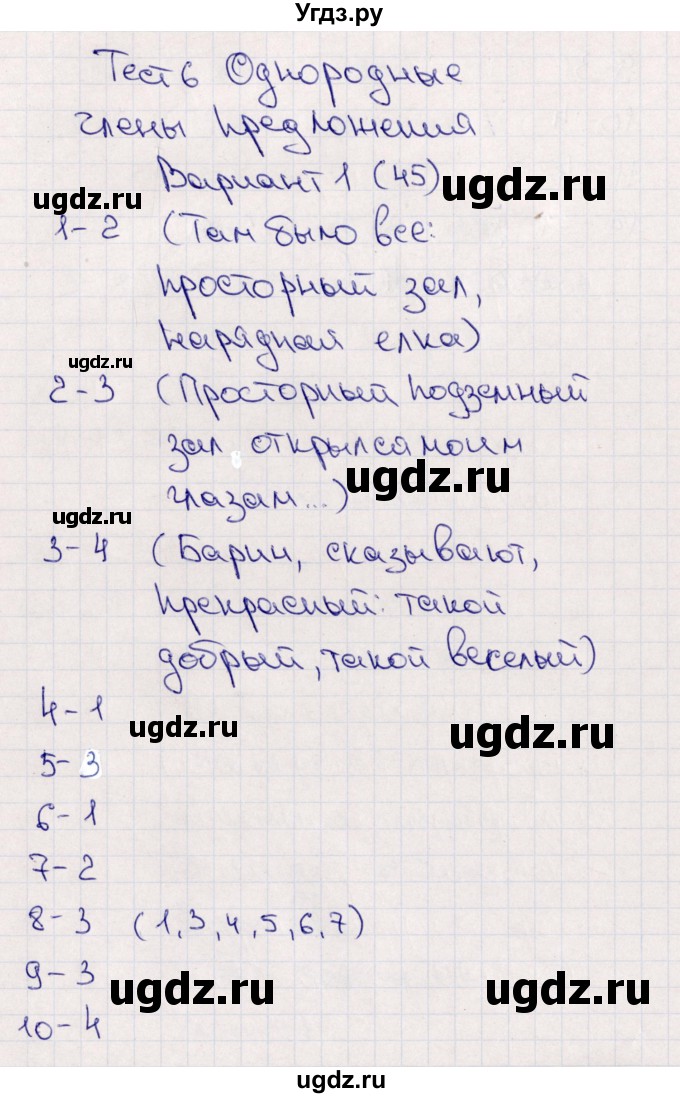 Угдз.ру
Тест 6 Однородные
члены предложения
Вариант 1 (45)
ugdz.ru
ugdz.ru
1-2 (Там было все:
просторный зал,
нарядная елка)
ugdz.ru
2-3 (Просторный подземный
зал открылся моим
ugdz.ru
глазам...)
ugdz.ru
3-4 (Барин, сказывают,
прекрасный: такой
добрый, такой веселый)
4-1
ugdz.ru
ugdz.ru
5-3
6-1
7-2
8-3 (1,3,4,5,6,7)
9-3
ugdz.ru
ugdz.ru
10-4
ugdz.ru